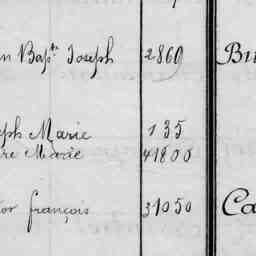 n Bapte Joseph 2869 Bu
eph Marie 135
re Marie 41800
or françois 31050 Ca